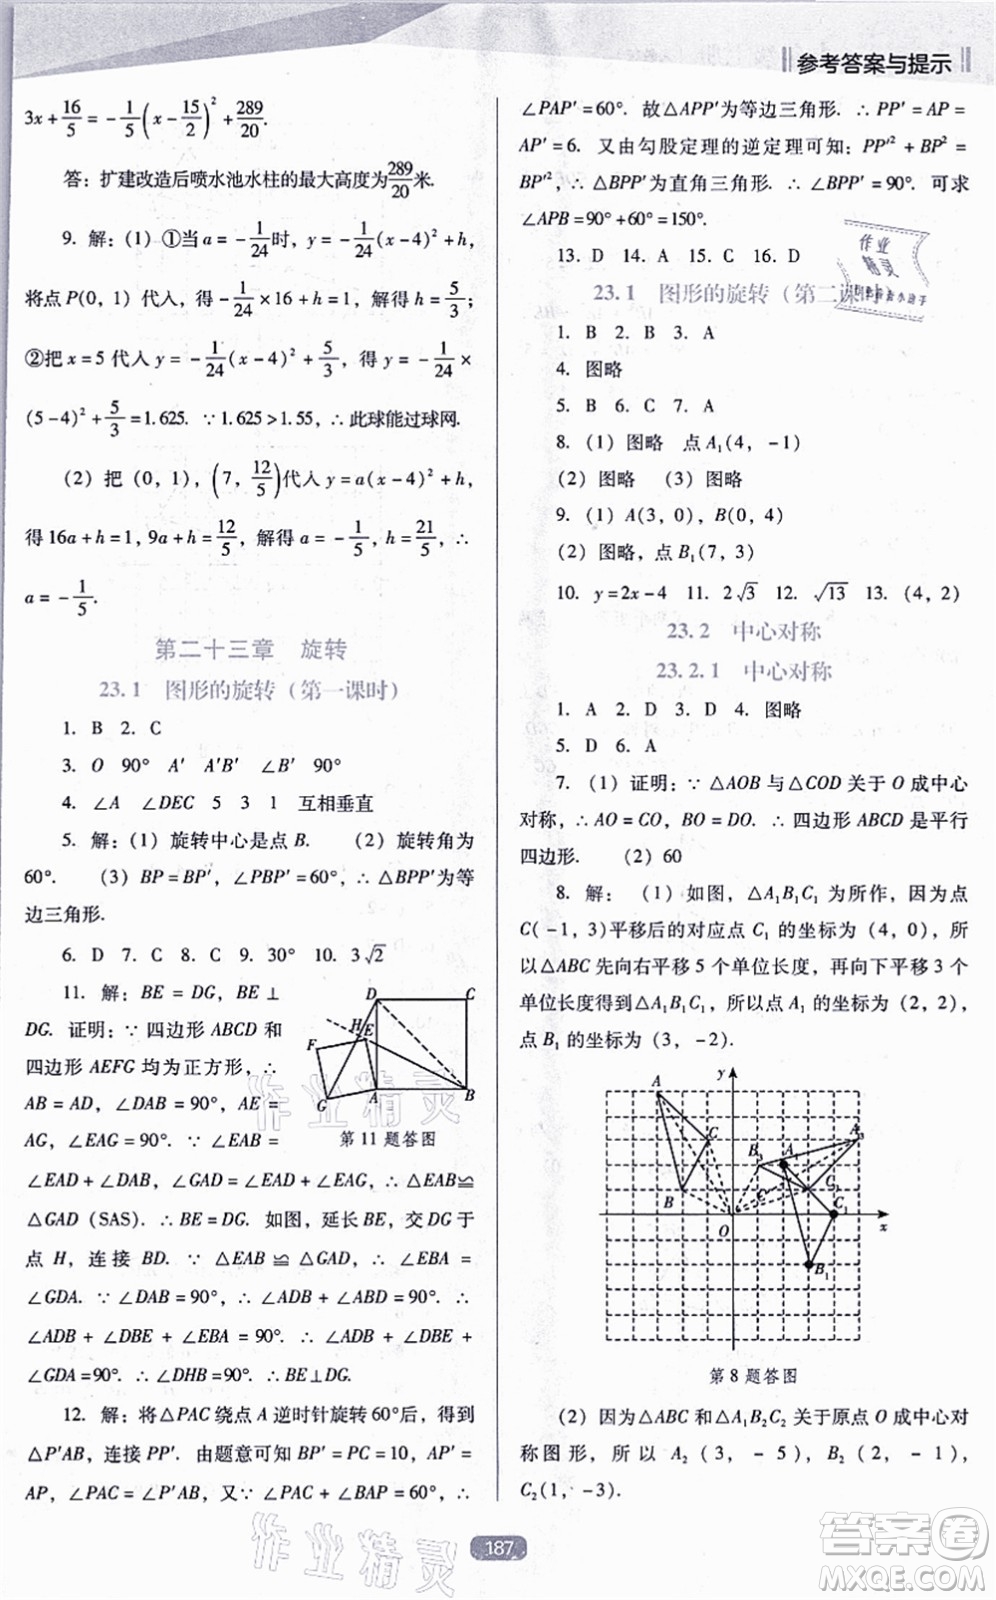 参考答案与提示
3x+16/5=-1/5(x-15/2)²+289/20.
答：扩建改造后喷水池水柱的最大高度为289/20米.
9. 解：(1) ①当a=-1/24时，y=-1/24(x-4)²+h，
将点P(0，1)代入，得-1/24×16+h=1，解得h=5/3；
②把x=5代入y=-1/24(x-4)²+5/3，得y=-1/24×
(5-4)²+5/3=1.625. ∵1.625>1.55，∴此球能过球网.
(2) 把(0，1)，(7，12/5)代入y=a(x-4)²+h，
得16a+h=1，9a+h=12/5，解得a=-1/5，h=21/5，∴
a=-1/5.
第二十三章 旋转
23.1 图形的旋转（第一课时）
1. B 2. C
3. O 90° A′ A′B′ ∠B′ 90°
4. ∠A ∠DEC 5 3 1 互相垂直
5. 解：(1) 旋转中心是点B. (2) 旋转角为
60°. (3) BP=BP′，∠PBP′=60°，∴△BPP′为等
边三角形.
6. D 7. C 8. C 9. 30° 10. 3√2
11. 解：BE=DG，BE⊥
DG. 证明：∵四边形ABCD和
四边形AEFG均为正方形，∴
AB=AD，∠DAB=90°，AE=
AG，∠EAG=90°. ∵∠EAB=
∠EAD+∠DAB，∠GAD=∠EAD+∠EAG，∴△EAB≌
△GAD（SAS）. ∴BE=DG. 如图，延长BE，交DG于
点H，连接BD. ∵△EAB≌△GAD，∴∠EBA=
∠GDA. ∵∠DAB=90°，∴∠ADB+∠ABD=90°. ∴
∠ADB+∠DBE+∠EBA=90°. ∴∠ADB+∠DBE+
∠GDA=90°. ∴∠DHB=90°. ∴BE⊥DG.
D C H E F G A B
第11题答图
12. 解：将△PAC绕点A逆时针旋转60°后，得到
△P′AB，连接PP′. 由题意可知BP′=PC=10，AP′=
AP，∠PAC=∠P′AB，又∵∠PAC+∠BAP=60°，∴
∠PAP′=60°. 故△APP′为等边三角形. ∴PP′=AP=
AP′=6. 又由勾股定理的逆定理可知：PP′²+BP²=
BP′²，∴△BPP′为直角三角形. ∴∠BPP′=90°. 可求
∠APB=90°+60°=150°.
13. D 14. A 15. C 16. D
23.1 图形的旋转（第二课
作业
精灵
1. B 2. B 3. A
4. 图略
5. B 6. C 7. A
8. (1) 图略 点A₁(4，-1)
(2) 图略 (3) 图略
9. (1) A(3，0)，B(0，4)
(2) 图略，点B₁(7，3)
10. y=2x-4 11. 2√3 12. √13 13. (4，2)
23.2 中心对称
23.2.1 中心对称
1. A 2. D 3. D 4. 图略
5. D 6. A
7. (1) 证明：∵△AOB与△COD关于O成中心
对称，∴AO=CO，BO=DO. ∴四边形ABCD是平行
四边形. (2) 60
8. 解：(1) 如图，△A₁B₁C₁为所作，因为点
C(-1，3)平移后的对应点C₁的坐标为(4，0)，所
以△ABC先向右平移5个单位长度，再向下平移3个
单位长度得到△A₁B₁C₁，所以点A₁的坐标为(2，2)，
点B₁的坐标为(3，-2).
y A C B O x A₁ A₃ B₃ C₃ C₁ B₁
第8题答图
(2) 因为△ABC和△A₁B₂C₂关于原点O成中心对
称图形，所以A₂(3，-5)，B₂(2，-1)，
C₂(1，-3).
187
作业精灵
作业精灵
答案卷
MXQE.COM